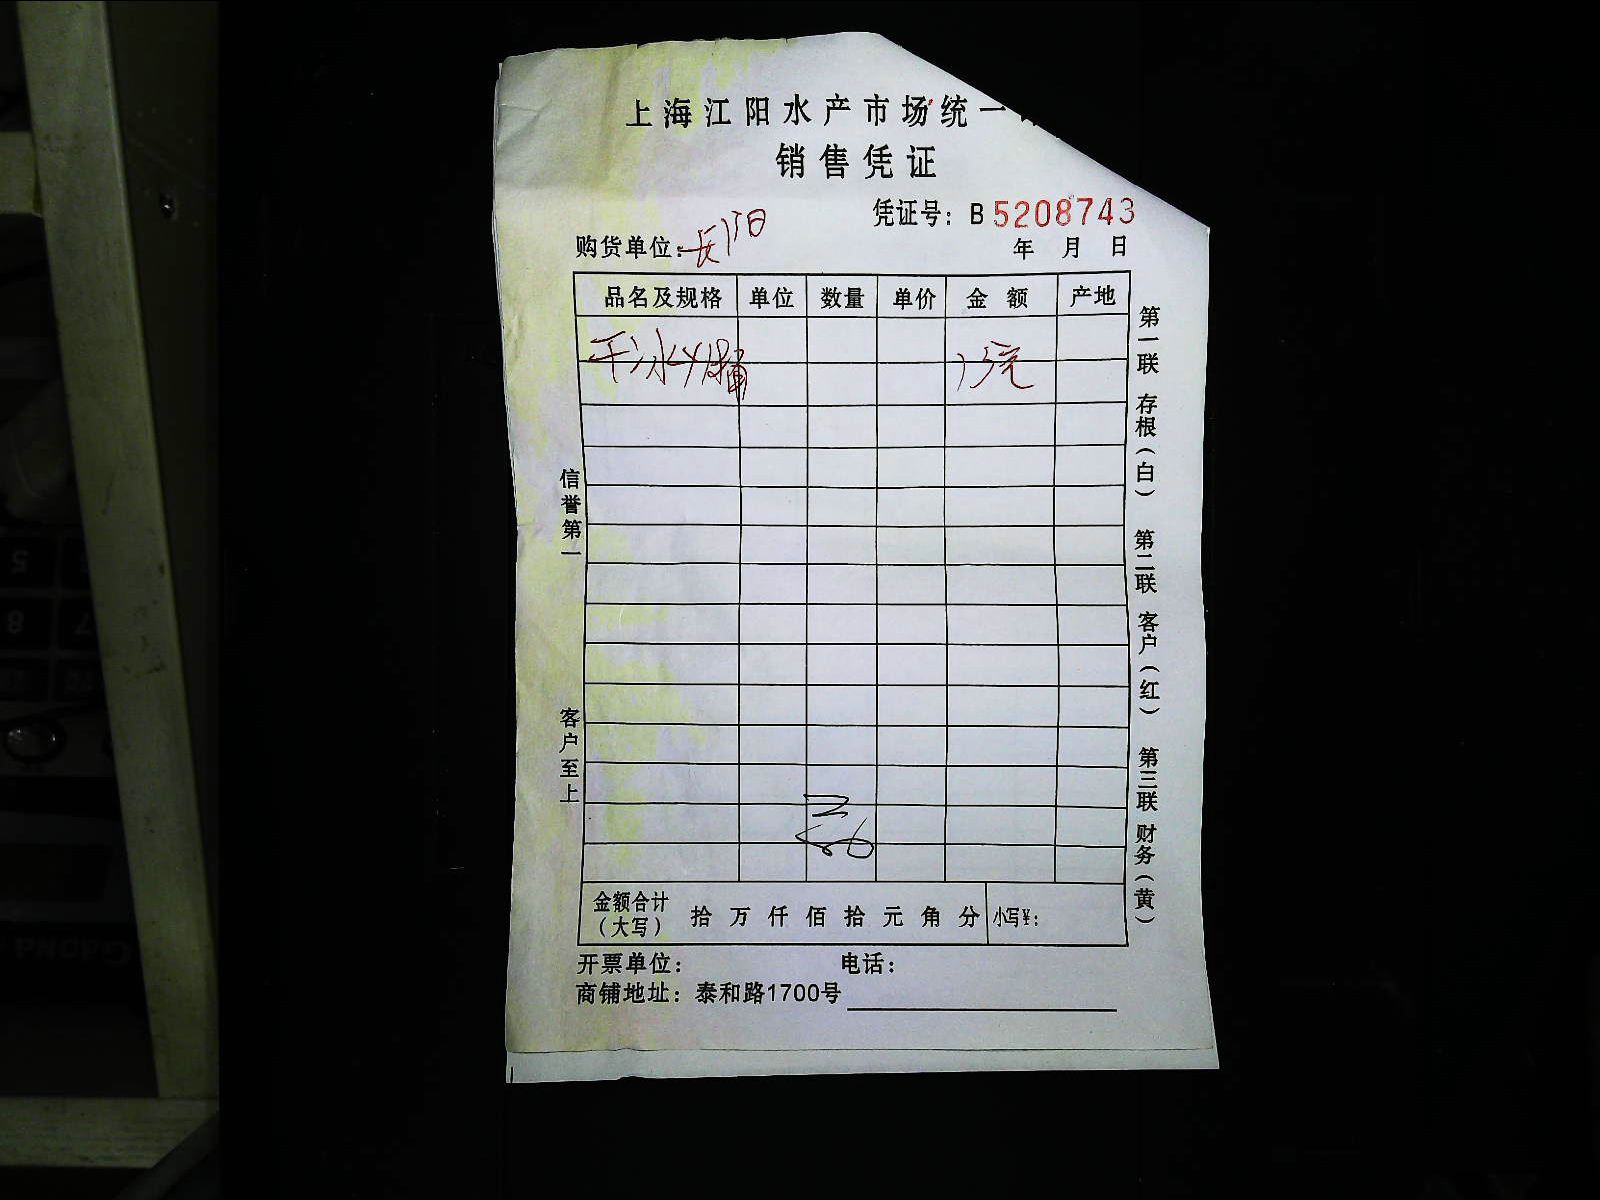 上海江阳水产市场统一
销售凭证
凭证号：B 5208743
购货单位：长阳
年 月 日
品名及规格 单位 数量 单价 金额 产地
干冰 元
信誉第一
客户至上
第一联 存根（白） 第二联 客户（红） 第三联 财务（黄）
金额合计（大写） 拾 万 仟 佰 拾 元 角 分 小写¥：
开票单位： 电话：
商铺地址：泰和路1700号